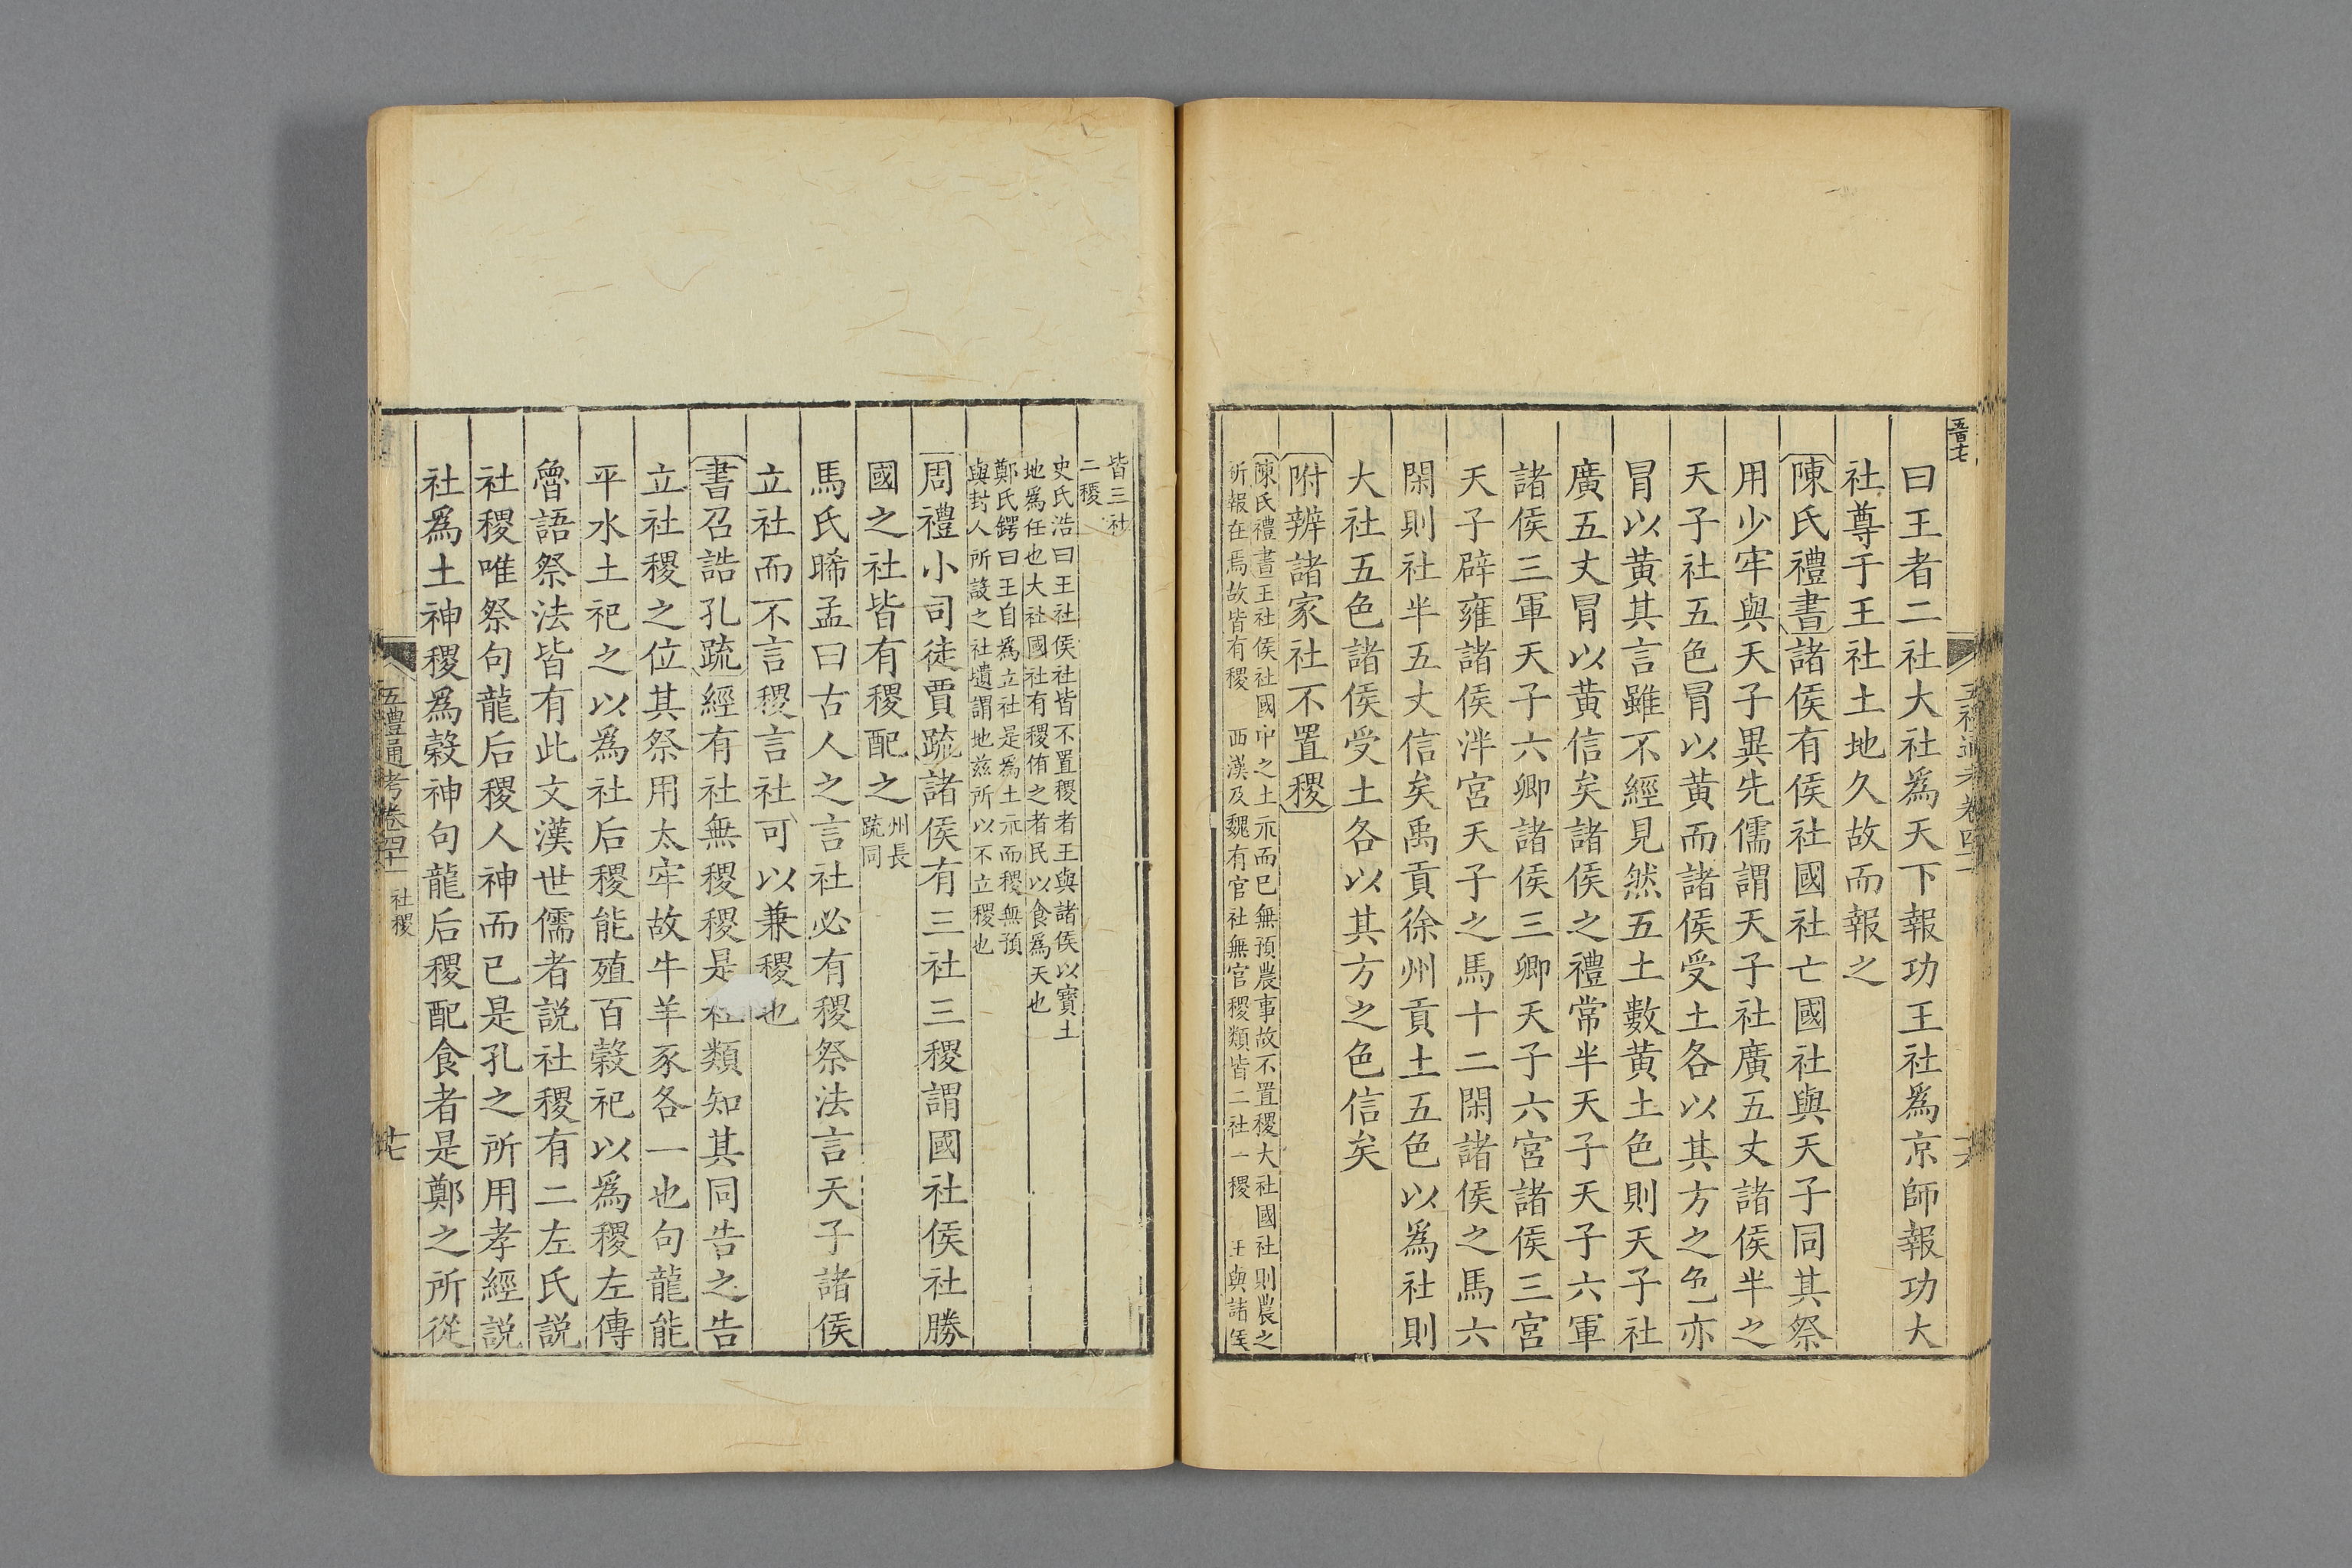 五百七
曰王者二社大社為天下報功王社爲京師報功大
社尊于王社土地久故而報之
陳氏禮書諸侯有侯社國社亡國社與天子同其祭
用少牢與天子異先儒謂天子社廣五丈諸侯半之
天子社五色冒以黄而諸侯受土各以其方之色亦
冒以黄其言雖不經見然五土數黄土色則天子社
廣五丈冒以黄信矣諸侯之禮常半天子天子六軍
諸侯三軍天子六卿諸侯三卿天子六宮諸侯三宮
天子辟雍諸侯泮宮天子之馬十二閑諸侯之馬六
閑則社半五丈信矣禹貢徐州貢土五色以爲社則
大社五色諸侯受土各以其方之色信矣
附辨諸家社不置稷
陳氏禮書王社侯社國中之土示而已無預農事故不置稷大社國社則農之
祈報在焉故皆有稷 西漢及魏有官社無官稷類皆二社一稷 王與諸侯
五禮通考卷四十一 六
皆三社
二稷
史氏浩曰王社侯社皆不置稷者王與諸侯以寶土
地爲任也大社國社有稷侑之者民以食爲天也
鄭氏鍔曰王自爲立社是爲土示而稷無預
與封人所設之社壝謂地兹所以不立稷也
周禮小司徒賈疏諸侯有三社三稷謂國社侯社勝
國之社皆有稷配之
州長
疏同
馬氏晞孟曰古人之言社必有稷祭法言天子諸侯
立社而不言稷言社可以兼稷也
書召誥孔疏經有社無稷稷是社類知其同告之告
立社稷之位其祭用太牢故牛羊豕各一也句龍能
平水土祀之以爲社后稷能殖百榖祀以爲稷左傳
魯語祭法皆有此文漢世儒者説社稷有二左氏説
社稷唯祭句龍后稷人神而已是孔之所用孝經説
社爲土神稷爲榖神句龍后稷配食者是鄭之所從
五禮通考卷四十一 社稷 七